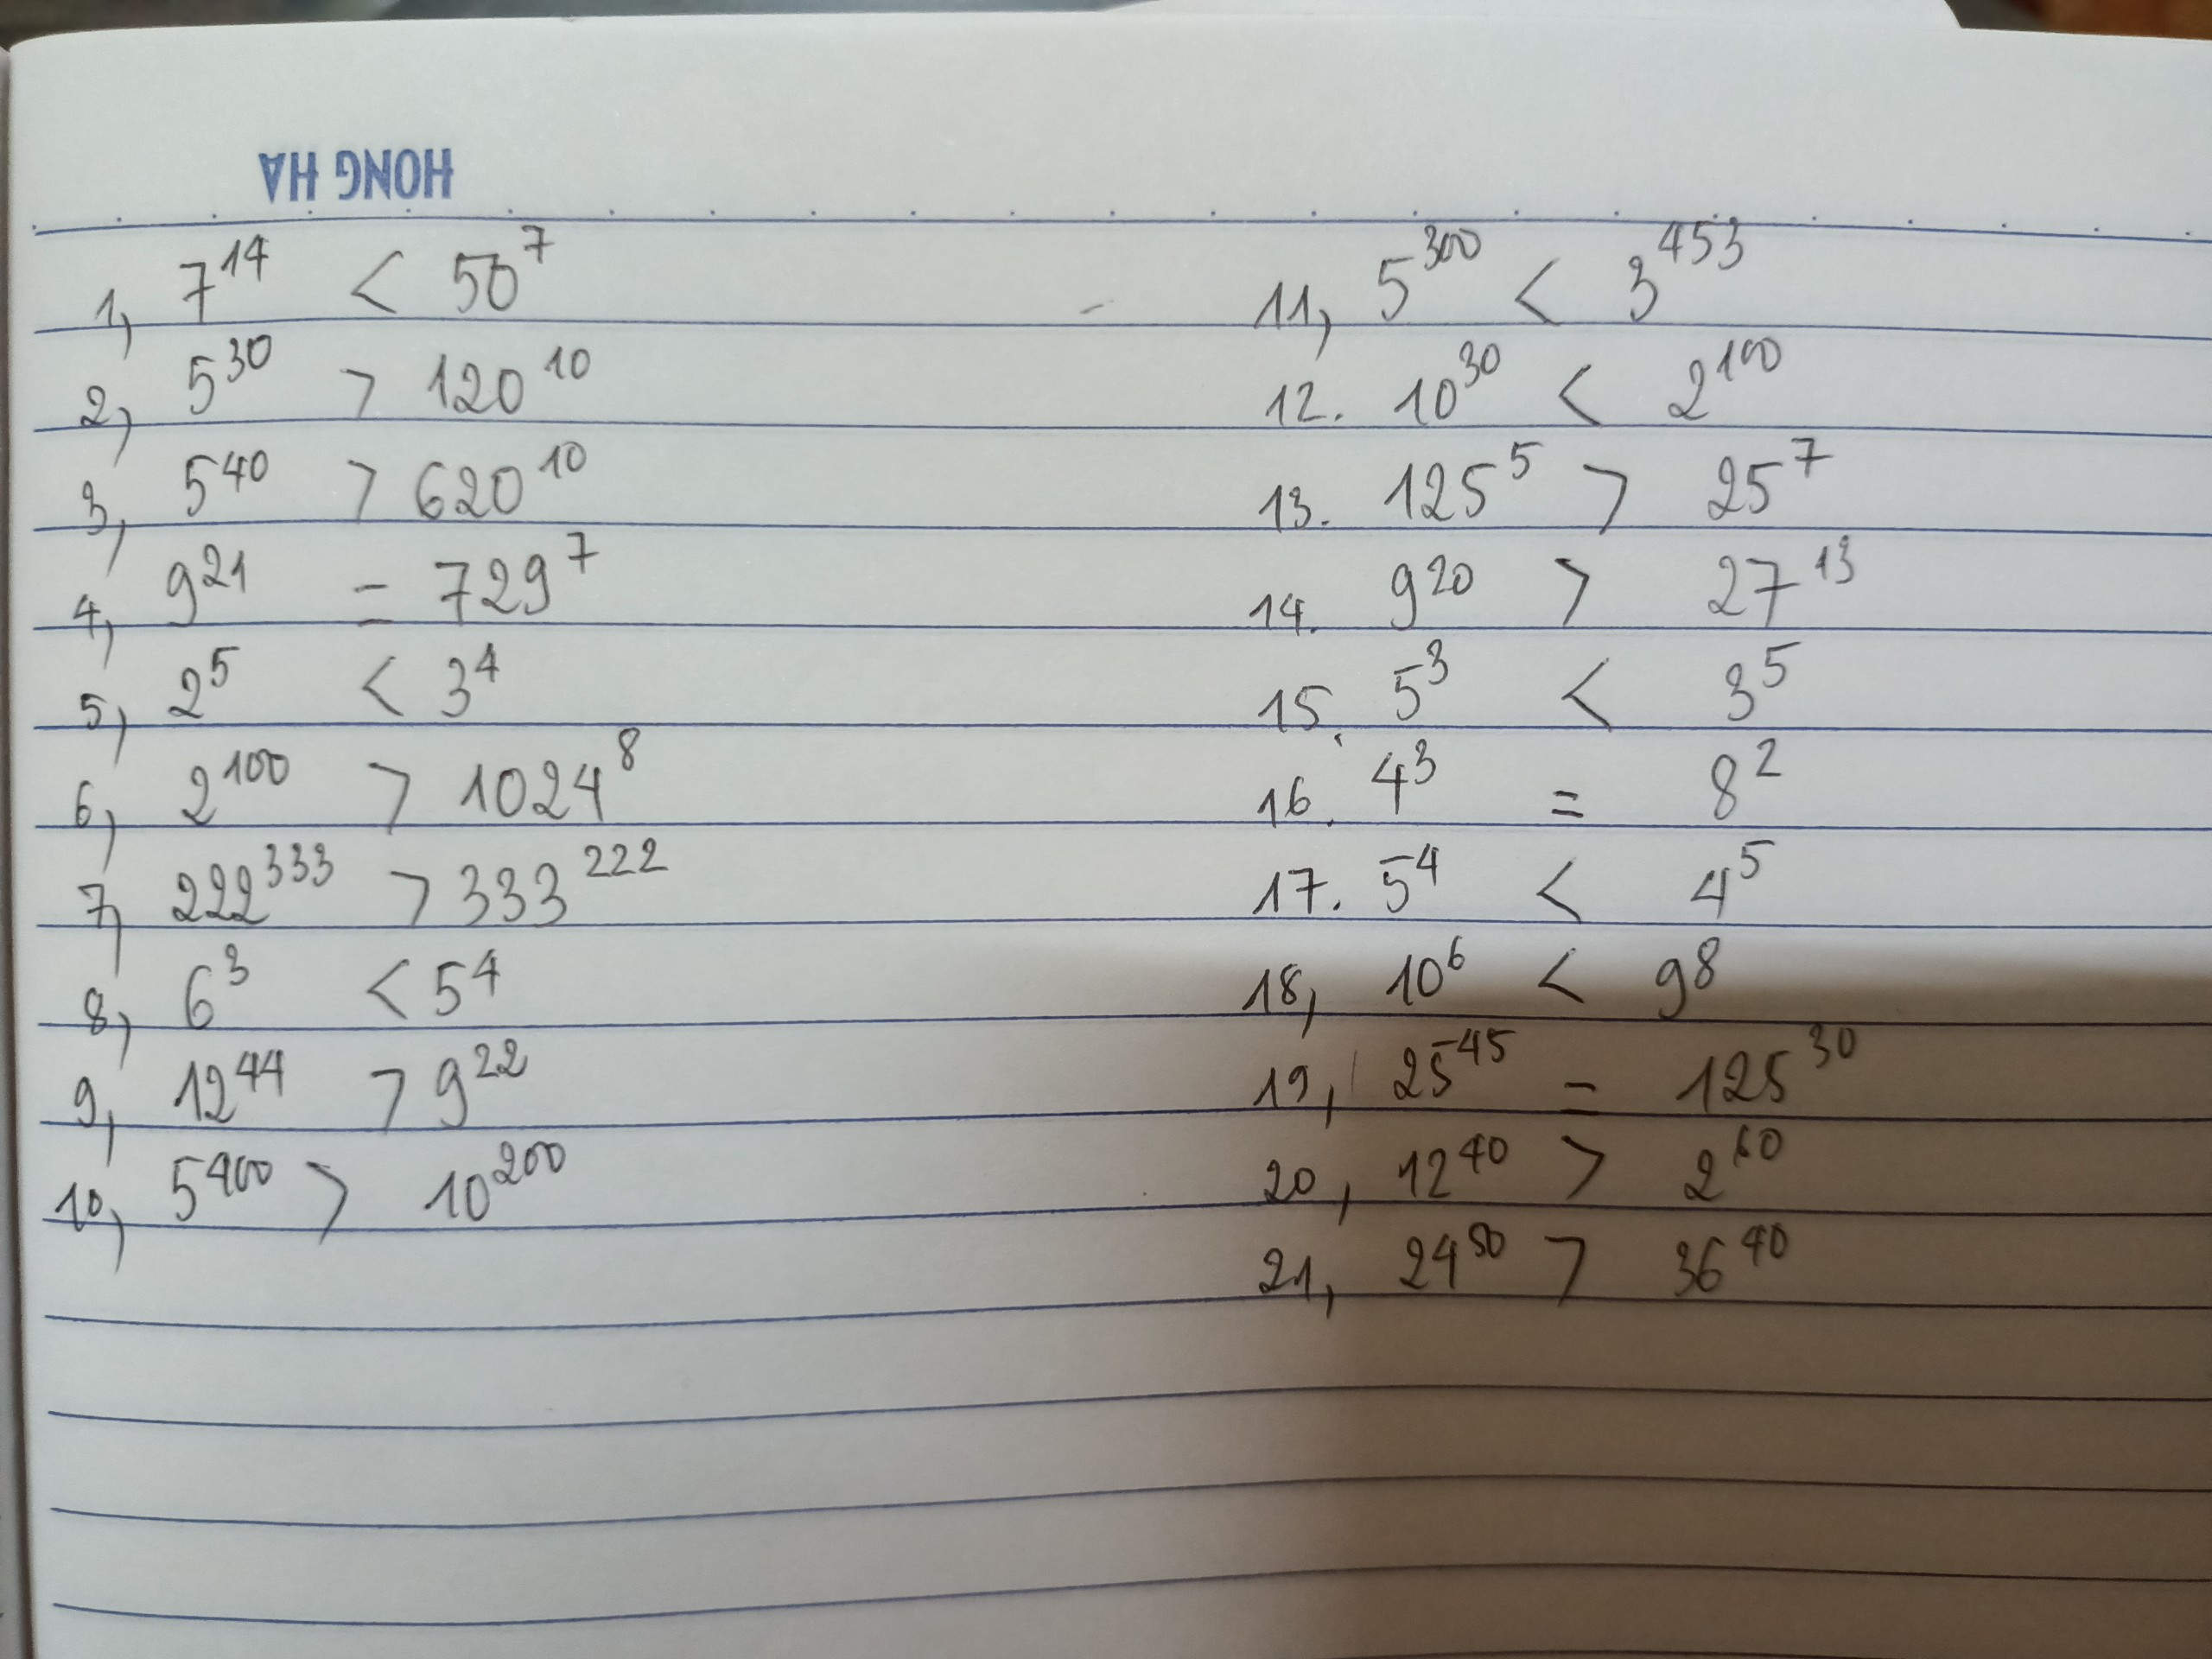 HONG HA
1, 7¹⁴ < 50⁷
2, 5³⁰ > 120¹⁰
3, 5⁴⁰ > 620¹⁰
4, 9²¹ = 729⁷
5, 2⁵ < 3⁴
6, 2¹⁰⁰ > 1024⁸
7, 222³³³ > 333²²²
8, 6³ < 5⁴
9, 12⁴⁴ > 9²²
10, 5⁴⁰⁰ > 10²⁰⁰
11, 5³⁰⁰ < 3⁴⁵³
12. 10³⁰ < 2¹⁰⁰
13. 125⁵ > 25⁷
14. 9²⁰ > 27¹³
15. 5³ < 3⁵
16. 4³ = 8²
17. 5⁴ < 4⁵
18, 10⁶ < 9⁸
19, 25⁴⁵ = 125³⁰
20, 12⁴⁰ > 2⁶⁰
21, 24⁵⁰ > 36⁴⁰